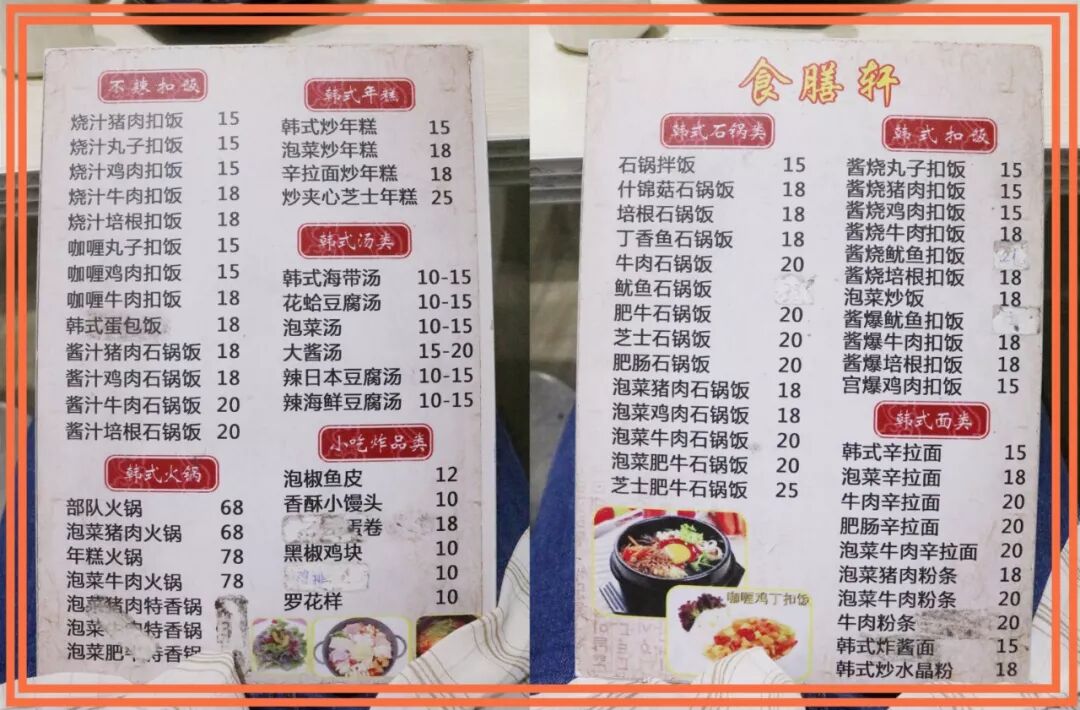 不辣扣饭
烧汁猪肉扣饭 15
烧汁丸子扣饭 15
烧汁鸡肉扣饭 15
烧汁牛肉扣饭 18
烧汁培根扣饭 18
咖喱丸子扣饭 15
咖喱鸡肉扣饭 15
咖喱牛肉扣饭 18
韩式蛋包饭 18
酱汁猪肉石锅饭 18
酱汁鸡肉石锅饭 18
酱汁牛肉石锅饭 20
酱汁培根石锅饭 20
韩式火锅
部队火锅 68
泡菜猪肉火锅 68
年糕火锅 78
泡菜牛肉火锅 78
泡菜猪肉特香锅
泡菜牛肉特香锅
泡菜肥牛特香锅
韩式年糕
韩式炒年糕 15
泡菜炒年糕 18
辛拉面炒年糕 18
炒夹心芝士年糕 25
韩式汤类
韩式海带汤 10-15
花蛤豆腐汤 10-15
泡菜汤 10-15
大酱汤 15-20
辣日本豆腐汤 10-15
辣海鲜豆腐汤 10-15
小吃炸品类
泡椒鱼皮 12
香酥小馒头 10
蛋卷 18
黑椒鸡块 10
鸡排 10
罗花样 10
食膳轩
韩式石锅类
石锅拌饭 15
什锦菇石锅饭 18
培根石锅饭 18
丁香鱼石锅饭 18
牛肉石锅饭 20
鱿鱼石锅饭
肥牛石锅饭 20
芝士石锅饭 20
肥肠石锅饭 20
泡菜猪肉石锅饭 18
泡菜鸡肉石锅饭 18
泡菜牛肉石锅饭 20
泡菜肥牛石锅饭 20
芝士肥牛石锅饭 25
咖喱鸡丁扣饭
韩式扣饭
酱烧丸子扣饭 15
酱烧猪肉扣饭 15
酱烧鸡肉扣饭 15
酱烧牛肉扣饭 18
酱烧鱿鱼扣饭
酱烧培根扣饭 18
泡菜炒饭 18
酱爆鱿鱼扣饭
酱爆牛肉扣饭 18
酱爆培根扣饭 18
宫爆鸡肉扣饭 15
韩式面类
韩式辛拉面 15
泡菜辛拉面 18
牛肉辛拉面 20
肥肠辛拉面 20
泡菜牛肉辛拉面 20
泡菜猪肉粉条 18
泡菜牛肉粉条 20
牛肉粉条 20
韩式炸酱面 15
韩式炒水晶粉 18